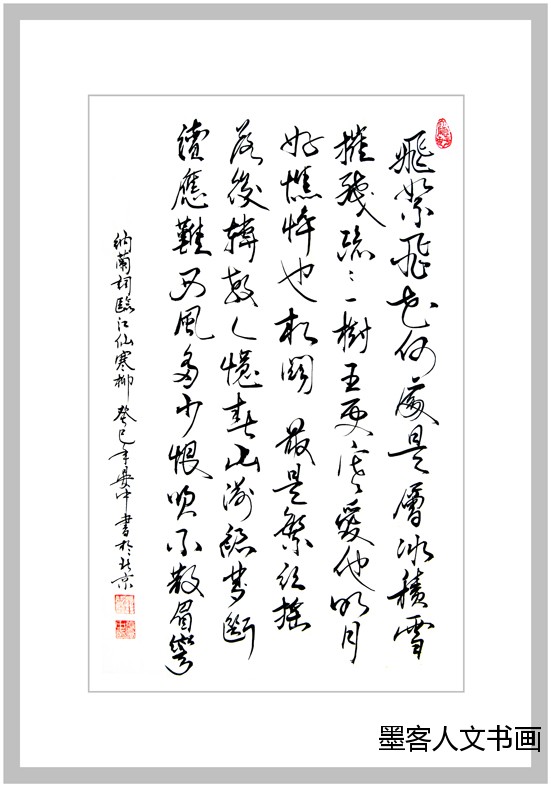 飛絮飛花何處是層冰積雪
摧殘疏々一樹五更寒愛他明月
好憔悴也相關 最是繁絲搖
落後轉教人憶春山湔裙夢斷
續應難西風多少恨吹不散眉彎
納蘭詞臨江仙寒柳 癸巳年 書於北京
墨客人文书画